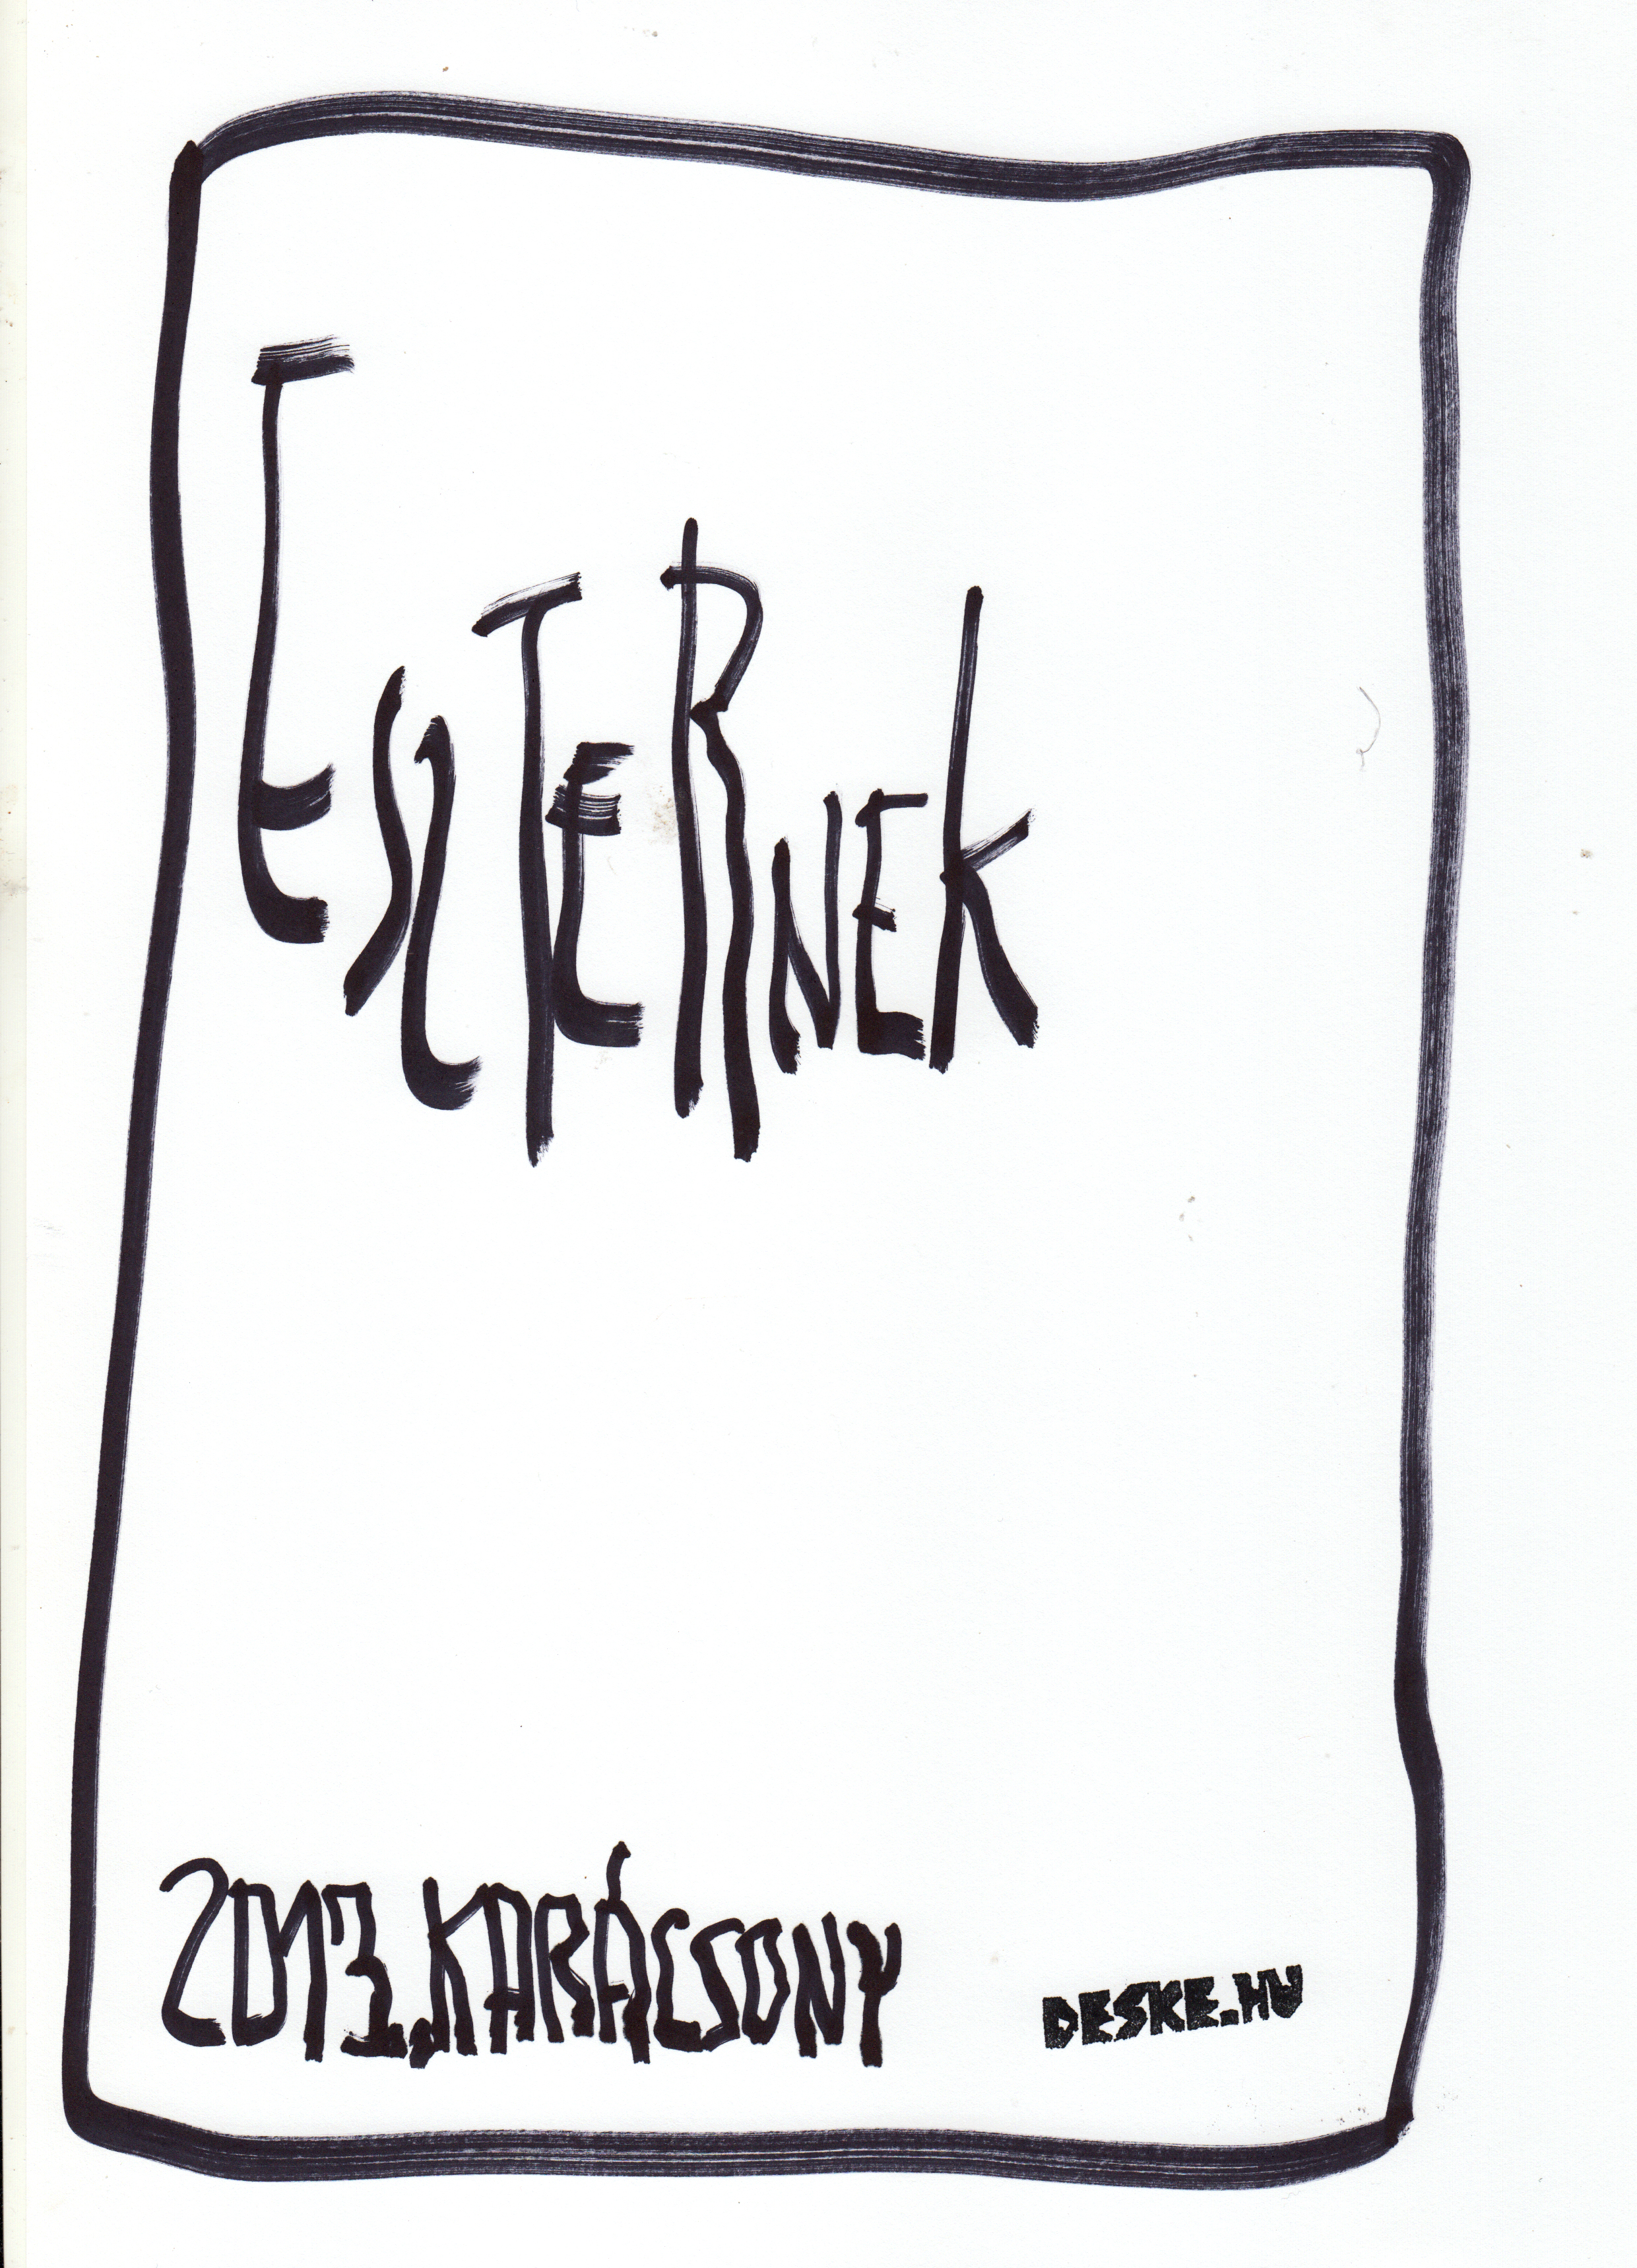 EszTERNEK
2013. KARÁCSONY
DESKE.HU